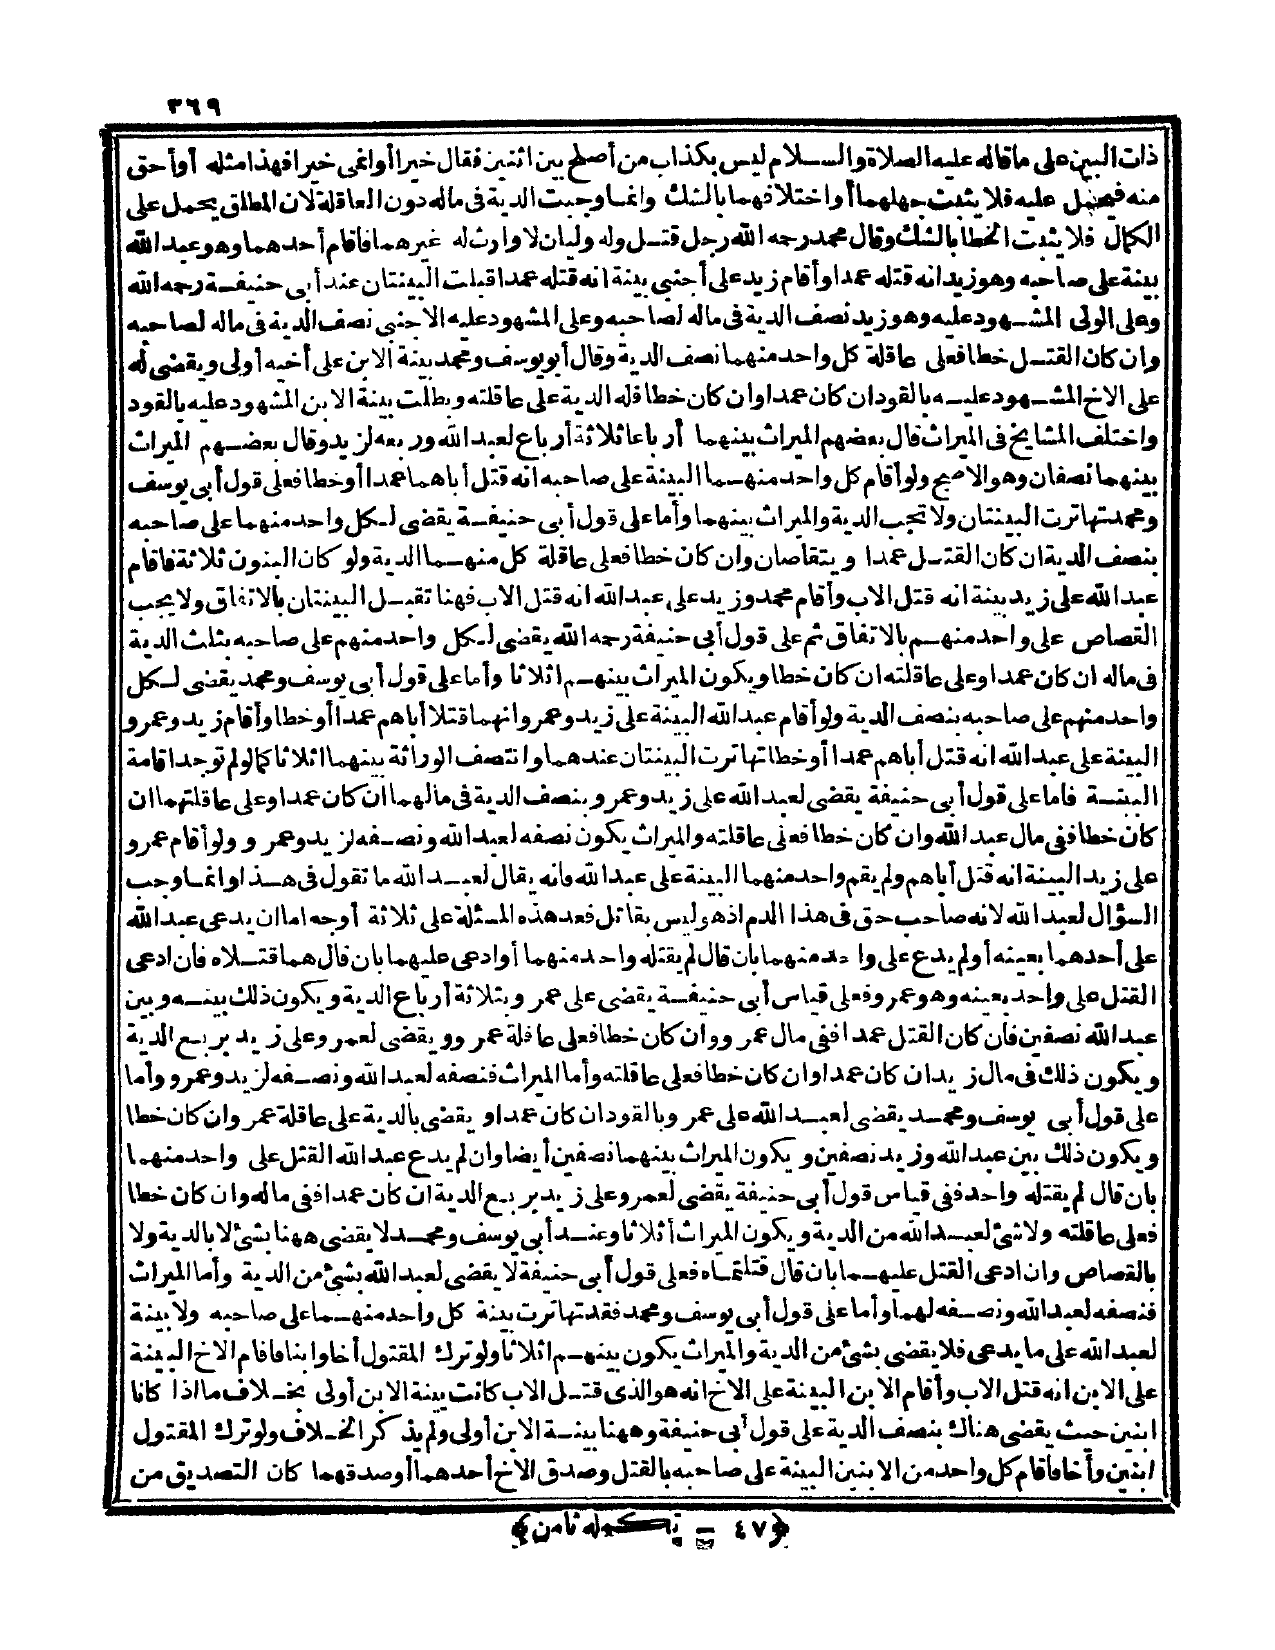 ٣٦٩
ذات البين على ما قاله عليه الصلاة والسلام ليس بكذاب من أصلح بين اثنين فقال خيرا أو انمى خيرا فهذا مثله أو أحق
منه فيحمل عليه فلا يثبت جهلهما أو اختلافهما بالشك وانما وجبت الدية فى ماله دون العاقلة لان المطلق يحمل على
الكمال فلا يثبت الخطا بالشك وقال محمد رحمه الله رجل قتل وله وليان لا وارث له غيرهما فاقام أحدهما وهو عبد الله
بينة على صاحبه وهو زيد انه قتله عمدا وأقام زيد على أجنبي بينة انه قتله عمدا قبلت البينتان عند أبى حنيفة رحمه الله
وعلى الولى المشهود عليه وهو زيد نصف الدية فى ماله لصاحبه وعلى المشهود عليه الاجنبى نصف الدية فى ماله لصاحبه
وان كان القتل خطا فعلى عاقلة كل واحد منهما نصف الدية وقال أبو يوسف ومحمد بينة الابن على أخيه أولى ويقضى له
على الاخ المشهود عليه بالقود ان كان عمدا وان كان خطا فله الدية على عاقلته وبطلت بينة الابن المشهود عليه بالقود
واختلف المشايخ فى الميراث قال بعضهم الميراث بينهما أرباعا ثلاثة أرباع لعبد الله وربعه لزيد وقال بعضهم الميراث
بينهما نصفان وهو الاصح ولو أقام كل واحد منهما البينة على صاحبه انه قتل أباهما عمدا أو خطا فعلى قول أبى يوسف
ومحمد تهاترت البينتان ولا تجب الدية والميراث بينهما وأما على قول أبى حنيفة يقضى لكل واحد منهما على صاحبه
بنصف الدية ان كان القتل عمدا ويتقاصان وان كان خطا فعلى عاقلة كل منهما الدية ولو كان البنون ثلاثة فاقام
عبد الله على زيد بينة انه قتل الاب وأقام محمد وزيد على عبد الله انه قتل الاب فهنا تقبل البينتان بالاتفاق ولا يجب
القصاص على واحد منهم بالاتفاق ثم على قول أبى حنيفة رحمه الله يقضى لكل واحد منهم على صاحبه بثلث الدية
فى ماله ان كان عمدا وعلى عاقلته ان كان خطا ويكون الميراث بينهم اثلاثا وأما على قول أبى يوسف ومحمد يقضى لكل
واحد منهم على صاحبه بنصف الدية ولو أقام عبد الله البينة على زيد وعمرو انهما قتلا أباهم عمدا أو خطا وأقام زيد وعمرو
البينة على عبد الله انه قتل أباهم عمدا أو خطا تهاترت البينتان عندهما وانتصف الوراثة بينهما اثلاثا كما لو لم توجد اقامة
البينة فاما على قول أبى حنيفة يقضى لعبد الله على زيد وعمرو بنصف الدية فى مالهما ان كان عمدا وعلى عاقلتهما ان
كان خطا ففى مال عبد الله وان كان خطا فعلى عاقلته والميراث يكون نصفه لعبد الله ونصفه لزيد وعمرو ولو أقام عمرو
على زيد البينة انه قتل أباهم ولم يقم واحد منهما البينة على عبد الله فانه يقال لعبد الله ما تقول فى هذا وانما وجب
السؤال لعبد الله لانه صاحب حق فى هذا الدم اذ هو ليس بقاتل فعد هذه المسئلة على ثلاثة أوجه اما ان يدعى عبد الله
على أحدهما بعينه أو لم يدع على واحد منهما بان قال لم يقتله واحد منهما أو ادعى عليهما بان قال هما قتلاه فان ادعى
القتل على واحد بعينه وهو عمرو فعلى قياس أبى حنيفة يقضى على عمرو بثلاثة أرباع الدية ويكون ذلك بينه وبين
عبد الله نصفين فان كان القتل عمدا ففى مال عمرو وان كان خطا فعلى عاقلة عمرو ويقضى لعمرو وعلى زيد بربع الدية
ويكون ذلك فى مال زيد ان كان عمدا وان كان خطا فعلى عاقلته وأما الميراث فنصفه لعبد الله ونصفه لزيد وعمرو وأما
على قول أبى يوسف ومحمد يقضى لعبد الله على عمرو بالقود ان كان عمدا ويقضى بالدية على عاقلة عمر وان كان خطا
ويكون ذلك بين عبد الله وزيد نصفين ويكون الميراث بينهما نصفين أيضا وان لم يدع عبد الله القتل على واحد منهما
بان قال لم يقتله واحد ففى قياس قول أبى حنيفة يقضى لعمرو على زيد بربع الدية ان كان عمدا ففى ماله وان كان خطا
فعلى عاقلته ولا شئ لعبد الله من الدية ويكون الميراث أثلاثا وعند أبى يوسف ومحمد لا يقضى ههنا بشئ لا بالدية ولا
بالقصاص وان ادعى القتل عليهما بان قال قتلتماه فعلى قول أبى حنيفة لا يقضى لعبد الله بشئ من الدية وأما الميراث
فنصفه لعبد الله ونصفه لهما وأما على قول أبى يوسف ومحمد فقد تهاترت بينة كل واحد منهما على صاحبه ولا بينة
لعبد الله على ما يدعى فلا يقضى بشئ من الدية والميراث يكون بينهم اثلاثا ولو ترك المقتول أخا وابنا فاقام الاخ البينة
على الابن انه قتل الاب وأقام الابن البينة على الاخ انه هو الذى قتل الاب كانت بينة الابن أولى بخلاف ما اذا كانا
ابنين حيث يقضى هناك بنصف الدية على قول أبى حنيفة وههنا بينة الابن أولى ولم يذكر الخلاف ولو ترك المقتول
ابنين وأخا فاقام كل واحد من الابنين البينة على صاحبه بالقتل وصدق الاخ أحدهما أو صدقهما كان التصديق من
﴿٤٧ – تكمله ثامن﴾